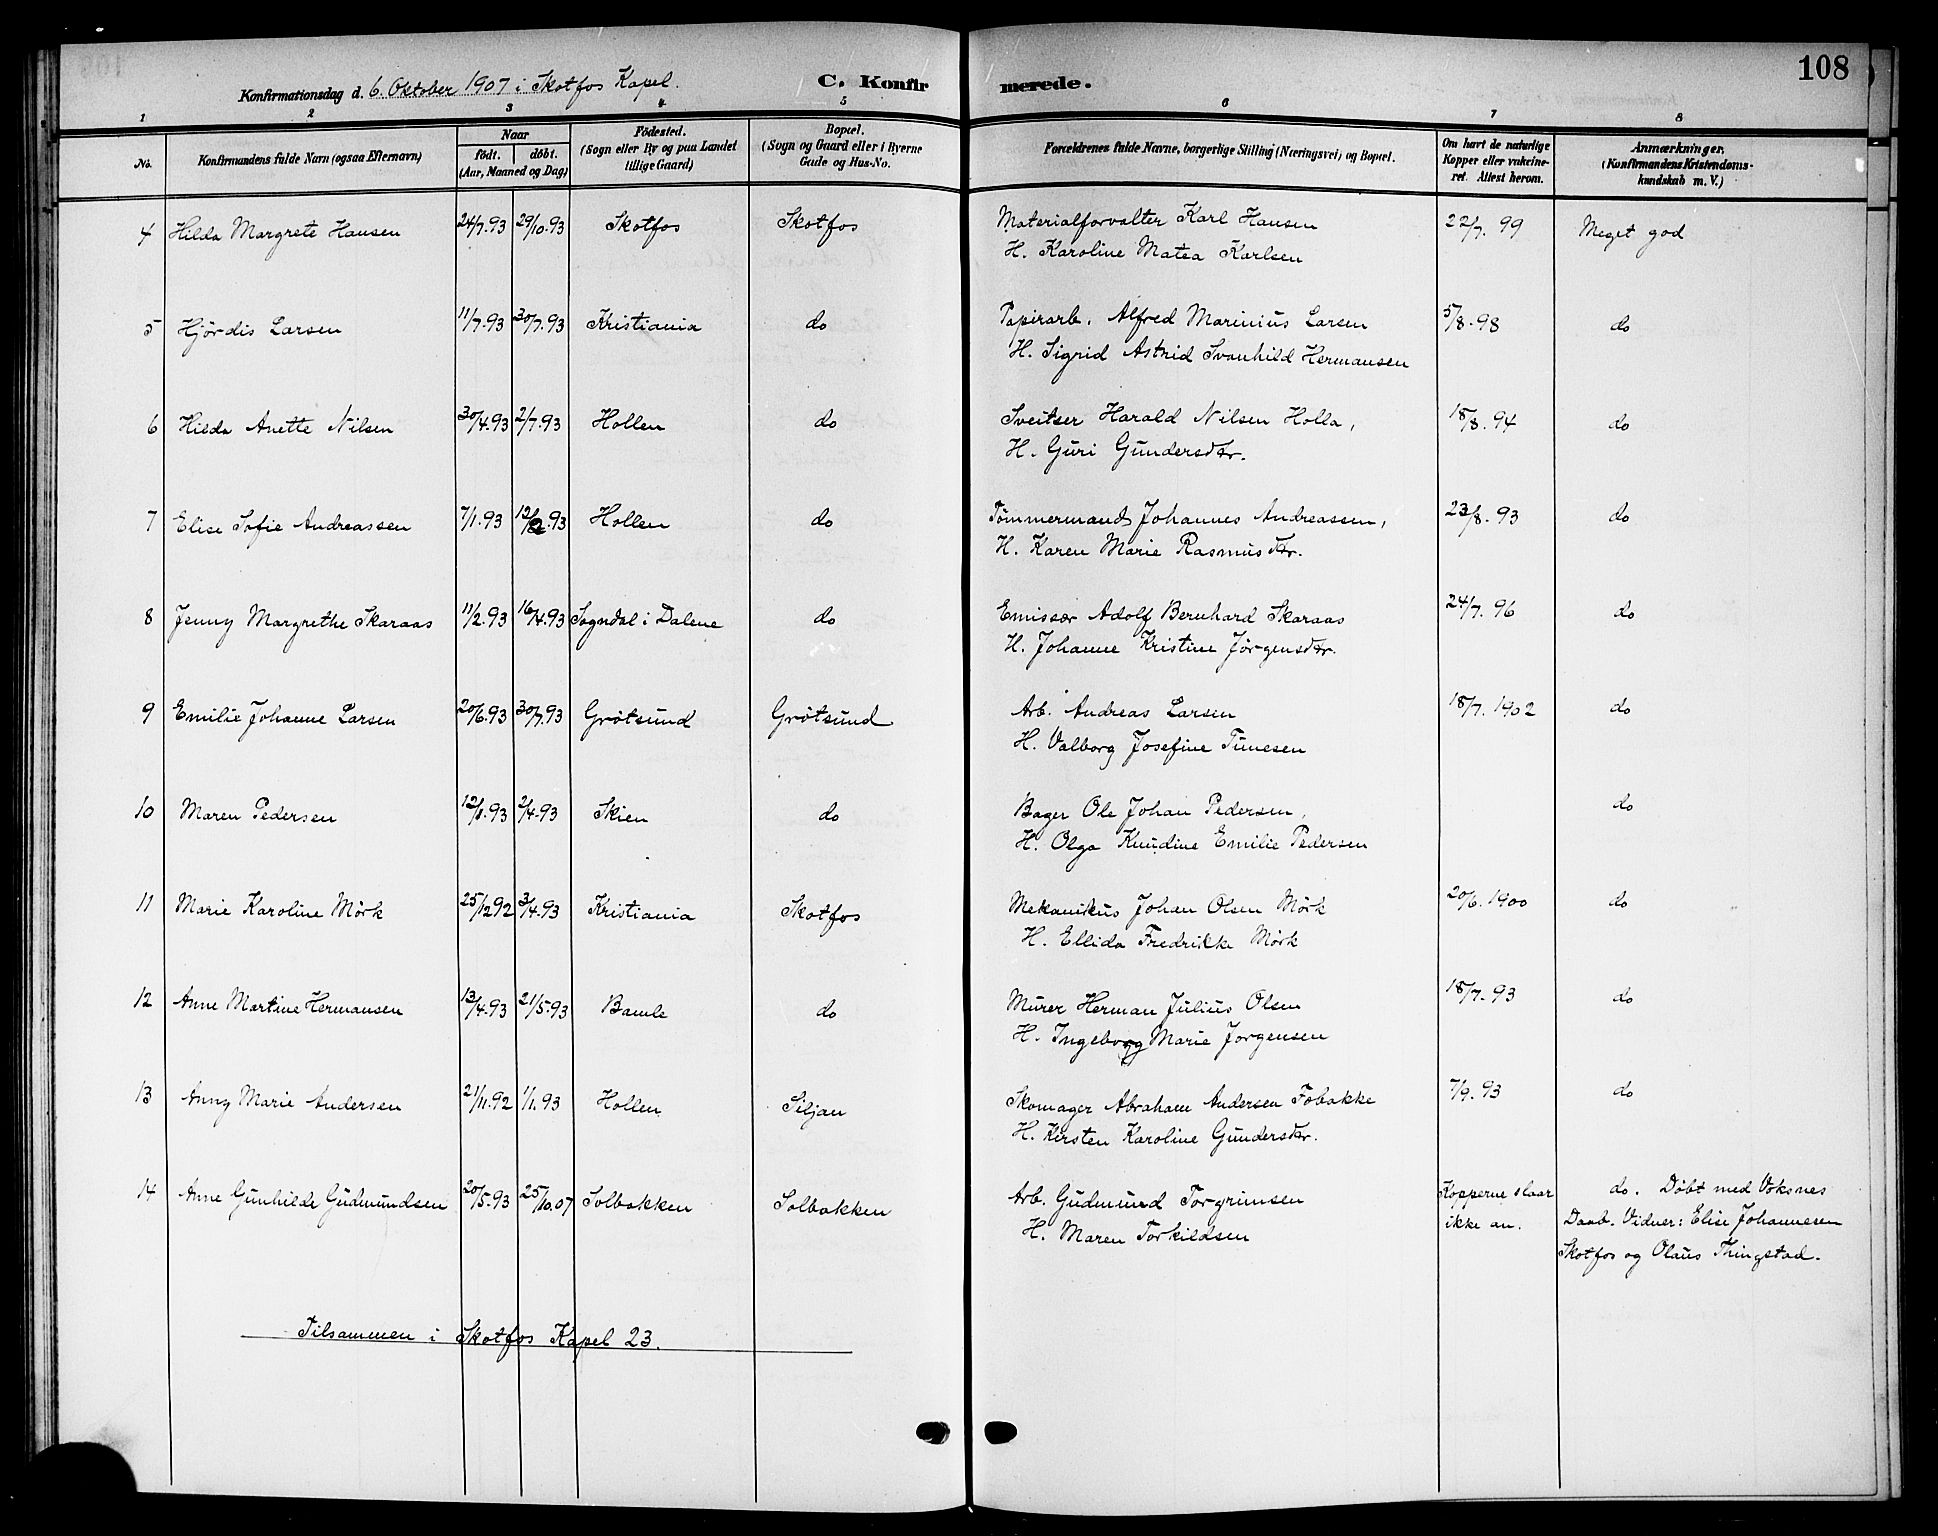 108
Konfirmationsdag d. 6. Oktober 1907 i Skotfos Kapel. C. Konfirmerede.
1 2 3 4 5 6 7 8
No. Konfirmandens fulde Navn (ogsaa Efternavn) Naar født. døbt. (Aar, Maaned og Dag) Fødested. (Sogn eller By og paa Landet tillige Gaard) Bopæl. (Sogn og Gaard eller i Byerne Gade og Hus-No. Forældrenes fulde Navne, borgerlige Stilling (Næringsvei) og Bopæl. Om havt de naturlige Kopper eller vakcineret. Attest herom. Anmærkninger. (Konfirmandens Kristendomskundskab m. V.)
4 Hilda Margrete Hansen 24/7.93 29/10.93 Skotfos Skotfos Materialforvalter Karl Hansen 22/7. 99 Meget god
H. Karoline Matea Karlsen
5 Hjørdis Larsen 11/7.93 30/7.93 Kristiania do Papirarb. Alfred Marinius Larsen 5/8.98 do
H. Sigrid Astrid Svanhild Hermansen
6 Hilda Anette Nilsen 30/4.93 2/7.93 Hollen do Sveitser Harald Nilsen Holla, 18/8.94 do
H. Guri Gundersdtr.
7 Elise Sofie Andreassen 7/1.93 12/2.93 Hollen do Tömmermand Johannes Andreassen, 23/8.93 do
H. Karen Marie Rasmusdtr.
8 Jenny Margrethe Skaraas 11/2.93 16/4.93 Sogndal i Dalene do Emissær Adolf Bernhard Skaraas 24/7.96 do
H. Johanne Kristine Jørgensdtr.
9 Emilie Johanne Larsen 20/6.93 30/7.93 Grötsund Grötsund Arb. Andreas Larsen 18/7.1902 do
H. Valborg Josefine Tunesen
10 Maren Pedersen 12/1.93 2/4.93 Skien do Bager Ole Johan Pedersen, do
H. Olga Knudine Emilie Pedersen
11 Marie Karoline Mörk 25/12 92 3/4.93 Kristiania Skotfos Mekanikus Johan Olsen Mörk 20/6.1900 do
H. Ellida Fredrikke Mörk
12 Anne Martine Hermansen 13/4.93 21/5.93 Bamle do Murer Herman Julius Olsen 18/7.93 do
H. Ingeborg Marie Jorgensen
13 Anny Marie Andersen 21/11.92 1/1.93 Hollen Siljan Skomager Abraham Andersen Fobakke 7/9.93 do
H. Kirsten Karoline Gundersdtr.
14 Anne Gunhilde Gudmundsen 20/5.93 25/10.07 Solbakken Solbakken Arb. Gudmund Torgrimsen Kopperne slaar do. Døbt med Voksnes
H. Maren Torkildsen ikke an. Daab. Vidner: Elise Johannesen
Skotfos og Olaus Thingstad.
Tilsammen i Skotfos Kapel 23.